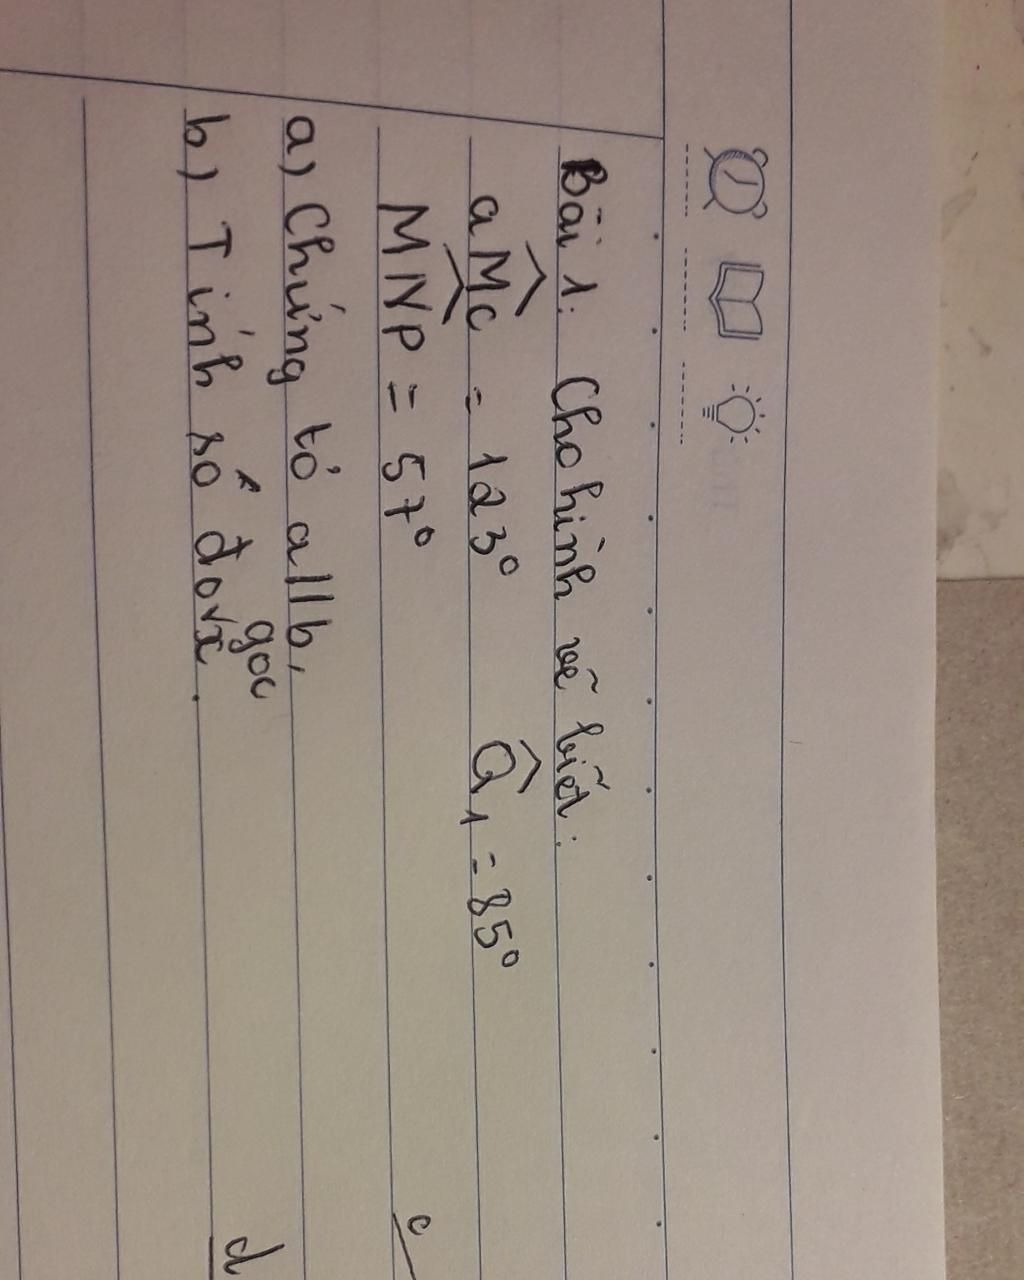 Bài 1: Cho hình vẽ biết:
aMc = 123° Q1 = 85°
MNP = 57°
a) Chứng tỏ a//b,
b) Tính số đo góc x.
c
d